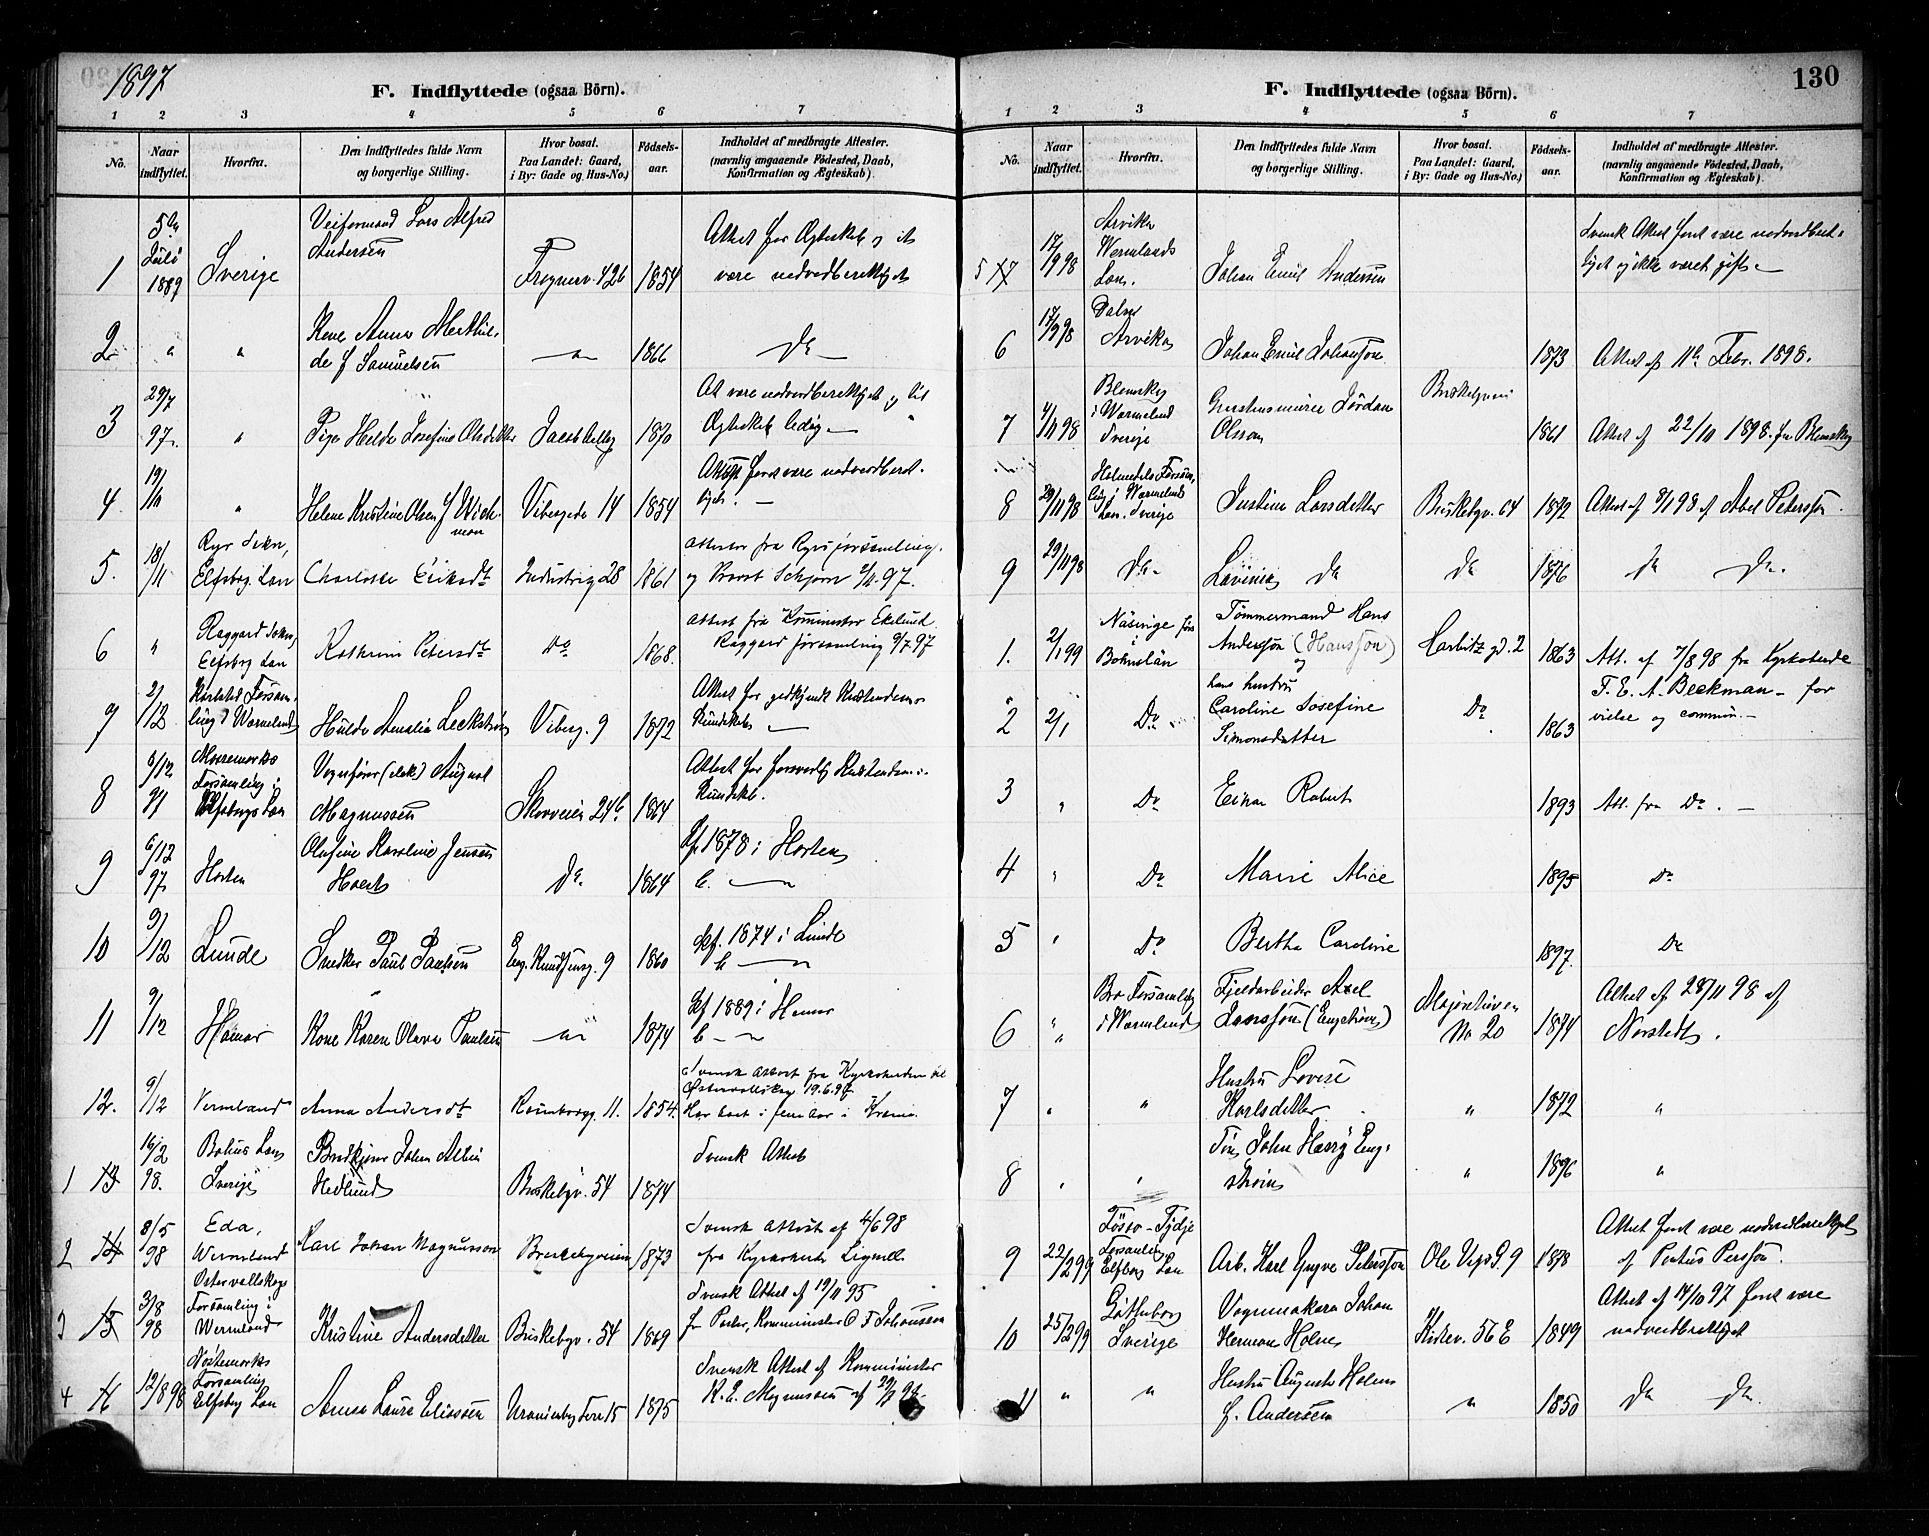 1897
F. Indflyttede (ogsaa Börn).
1 2 3 4 5 6 7
No. Naar indflyttet. Hvorfra. Den Indflyttedes fulde Navn og borgerlige Stilling. Hvor bosat. Paa Landet: Gaard, i By: Gade og Hus-No.) Födsels-aar. Indholdet af medbragte Attester. (navnlig angaaende Födested, Daab, Konfirmation og Ægteskab).
1 1889 Sverige Lars Alfred Andersen Frognerv. 42b 1854 Attest for Ægteskab og at være nadverdberettiget
2 " " Kone Anna 1866 Do
de f. Samuelsen
3 29/7 97. " Pige Josefine 1870 At være nadverdberettiget og til Ægteskab ledig
4. 19/11 " Helene Kristine Olsen f. Wickman Vibesgade 14 1854
5. 18/11 Ryr Sokn, Elfsborg Lan Charlotte Eriksdtr Industrig 28 1861 attester fra Ryrs forsamling. og Provst 97.
6 " Raggard Sokn, Elfsborg Lan Kathrine Petersdtr Do 1868. attest fra Komminister Ekelund Raggard forsamling 9/7 97
7 2/12 Karlstad Forsamling i Wermland Hulda Amalia Leckström Vibesg. 9 1872 Attest for godkjendt Kristendomskundskab
8 6/12 97 Forsamling i Elfsborgs Lan Vognfører August Magnussen Skovveien 24b 1864 Attest for forsvarlig Kristendomskundskb.
9 6/12 97. Horten Olufine Karoline Jensen Do 1864 Kf. 1878 i Horten
10 9/12 Lunde Snedker Paul Paulsen 9 1860 Kf. 1874 i Lunde
11 9/12 Hamar Kone Karen Olava Paulsen 1874 Kf 1889 i Hamar
12. 9/12 Vermland Anna Andersdtr 11. 1854. Svensk attest fra Kyrkoherden Østervallskog 19.6.97 Har boet i fem aar i Kra.nia
1 13 16/2 98. Bohus Lan Sverige John Albin Hedlund Briskebyv. 54 1874 Svensk Attest
2 14 8/5 98 Eda, Wermland Karl Johan Magnusson Briskebyveien 1873 Svensk attest af 4/6 98 fra Kyrkoherde Lignell.
3 15 3/8 98 Ostervallskogs Forsamling i Wermland Kristine Andersdatter Briskebyv. 54 1869 Svensk Attest af 19/11 95 Komminister Johansson
4 12/8 98 Forsamling Elfsborg Lan Anna Laura Eliassen Uranienborg Terr 15 1875 Svensk Attest af Komminister K. E. Magnusson af 98.
F. Indflyttede (ogsaa Börn).
130
1 2 3 4 5 6 7
No. Naar indflyttet. Hvorfra. Den Indflyttedes fulde Navn og borgerlige Stilling. Hvor bosat. Paa Landet: Gaard, i By: Gade og Hus-No.) Födsels-aar. Indholdet af medbragte Attester. (navnlig angaaende Födested, Daab, Konfirmation og Ægteskab).
5 17 17/9 98 Arvika Wermlands Lan. Johan Emil Andersen Svensk Attest for at være nadverdberettiget og ikke været gift
6 17/9 98 Arvika Johan Emil Johansson 1873 Attest af 11te Febr. 1898.
7 4/11 98 Blomskog i Wermland Sverige Jordan Olsson Briskebyveien 1861 Attest af 22/10 1898. fra Blomskog
8 29/11 98 Holmedals Forsamling i Wermlands Lan. Sverige Justina Larsdatter Briskebyv. 64 1872 Attest af 98 af Abel Petersson.
9 29/11 98 Do Lavinia Do Do 1876 Do Do.
1. 2/1 99 Näsinge fors i Bohuslän Tømmermand Hans Andersson (Hansson) og Harbitz gd. 2 1863 Att. af 7/8 98 fra Kyrkoherde F. E. A. Beckman - for vielse og commun.
2 2/1 Do hans hustru Caroline Josefine Simonsdatter Do 1863
3 " Do Einar Robert 1893 Att. fra Do. -
4 " Do Marie Alice 1895 Do
5 " Do Bertha Caroline 1897. Do
6 " Bro Forsamling i Wermland Fjeldarbeider Axel Larsson (Engström) Majorstuveien No 20 1874 Attest af 28/11 98 af Norstedt.
7 " " Hustru Lovise Karlsdatter " 1872 "
8 " " John Harry Engström " 1896 "
9 22/2 99 Fösso-Tydje Forsamling Elfborg Lan Arb. Karl Yngve Petersson Ole Vigs G. 9 1878 Attest for at være nadverdberettiget af Pontus Persson.
10 25/2 99 Göteborg Sverige Vognmakare Johan Herman Holm Kirkev. 56 E 1849 Attest af 14/10 97 for at være nadverdberettiget
11 " " Hustru Augusta Holm f. Andersen " 1850 Do Do